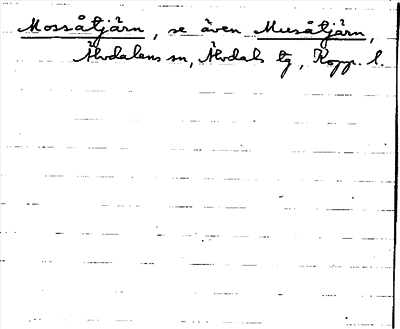 Mossåtjärn, se även Musåtjärn,
Älvdalens sn, Älvdals tg, Kopp. l.